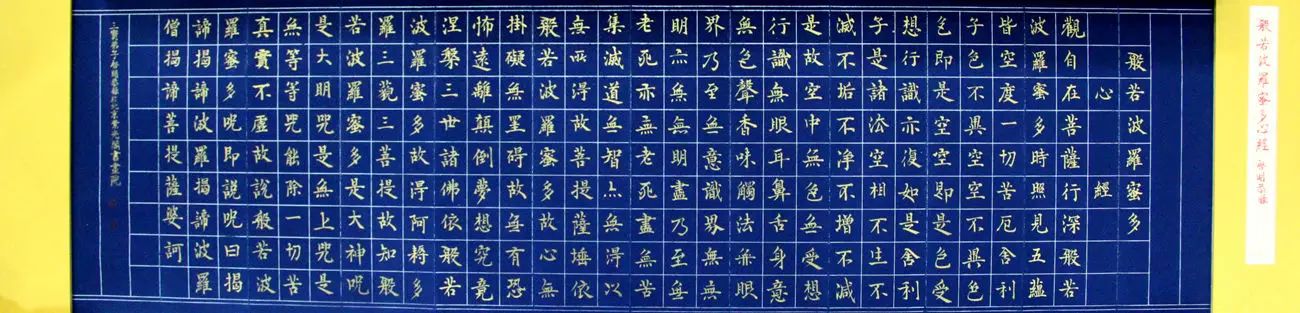 般若波羅蜜多心經
般若波羅蜜多
心經
觀自在菩薩行深般若
波羅蜜多時照見五蘊
皆空度一切苦厄舍利
子色不異空空不異色
色即是空空即是色受
想行識亦復如是舍利
子是諸法空相不生不
滅不垢不淨不增不減
是故空中無色無受想
行識無眼耳鼻舌身意
無色聲香味觸法無眼
界乃至無意識界無無
明亦無無明盡乃至無
老死亦無老死盡無苦
集滅道無智亦無得以
無所得故菩提薩埵依
般若波羅蜜多故心無
掛礙無罣碍故無有恐
怖遠離顛倒夢想究竟
涅槃三世諸佛依般若
波羅蜜多故得阿耨多
羅三藐三菩提故知般
若波羅蜜多是大神咒
是大明咒是無上咒是
無等等咒能除一切苦
真實不虛故說般若波
羅蜜多咒即說咒曰揭
諦揭諦波羅揭諦波羅
僧揭諦菩提薩婆訶
三寶弟子啓明恭錄於北京紫光閣書畫院